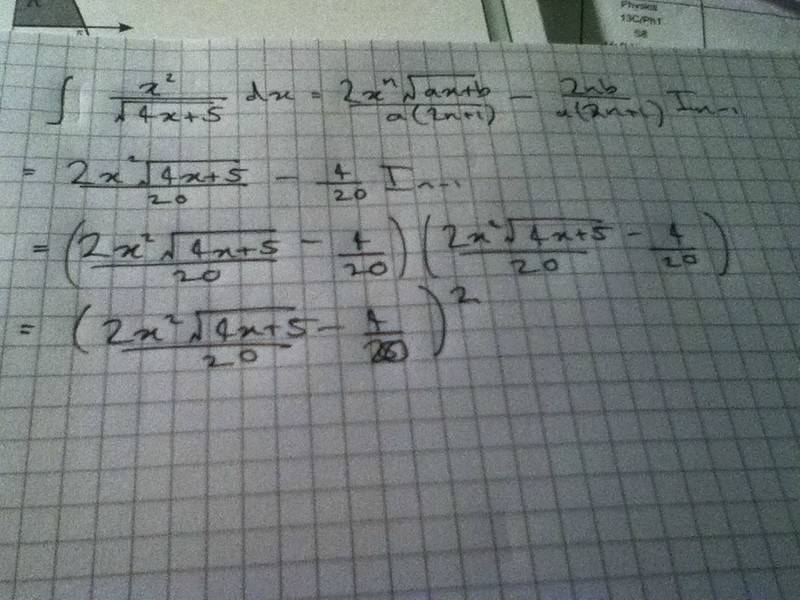 Physics
13C/Ph1
58
∫ x²/√(4x+5) dx = 2xⁿ√(ax+b)/a(2n+1) − 2nb/a(2n+1) Iₙ₋₁
= 2x²√(4x+5)/20 − 4/20 Iₙ₋₁
= (2x²√(4x+5)/20 − 4/20)(2x²√(4x+5)/20 − 4/20)
= (2x²√(4x+5)/20 − 4/20)²